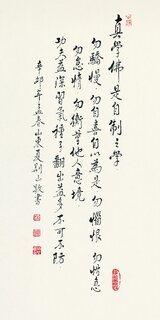 真學佛是自制之學
勿驕慢勿自喜自以為是勿惱恨勿性急
勿怠情勿衝擊他人意境
功夫益深習氣種子翻出益多不可不防
辛卯年孟春山東夏荆山敬書